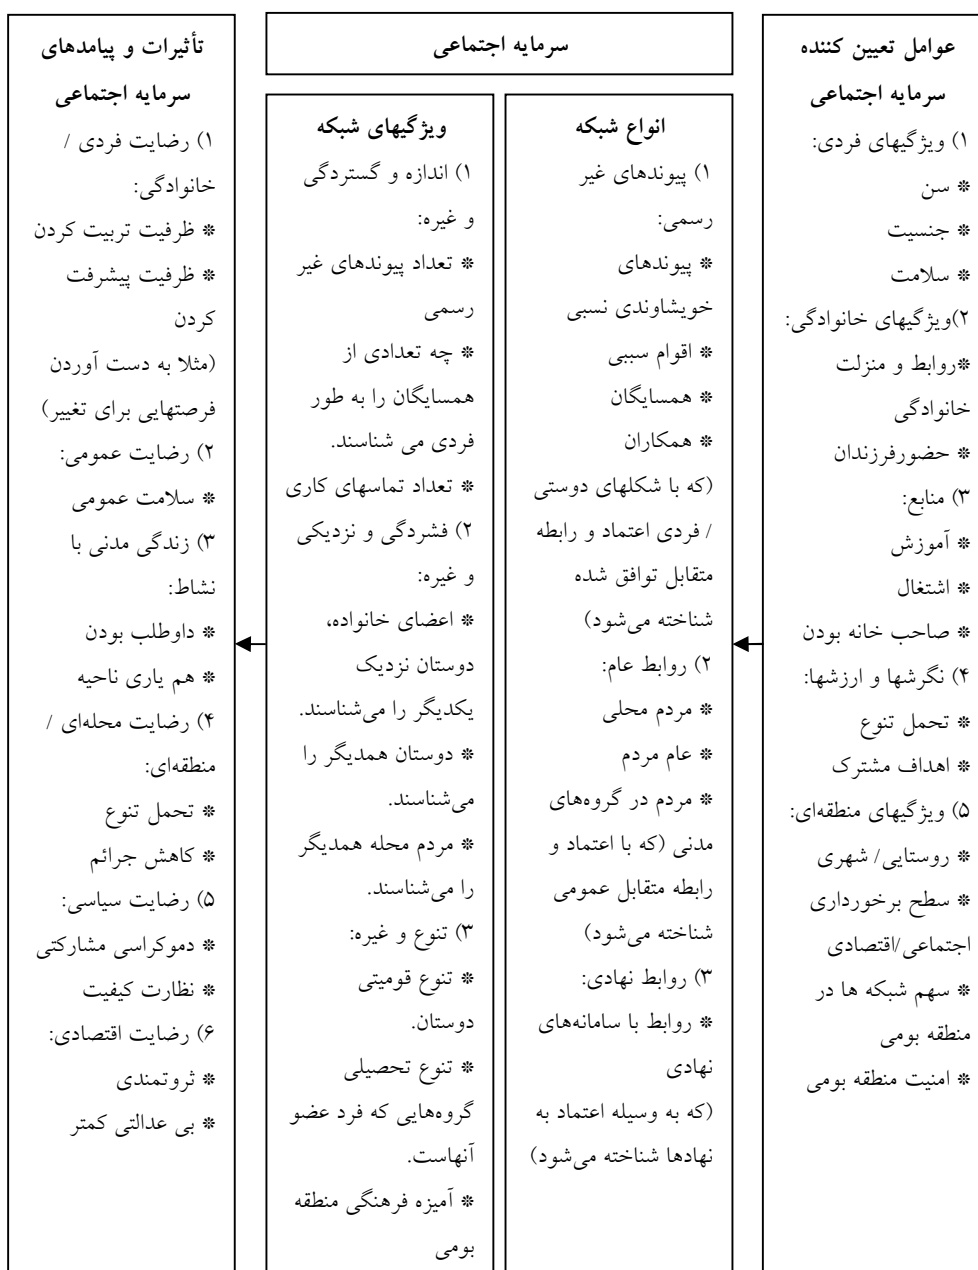 عوامل تعیین کننده
سرمایه اجتماعی
۱) ویژگیهای فردی:
* سن
* جنسیت
* سلامت
۲)ویژگیهای خانوادگی:
*روابط و منزلت
خانوادگی
* حضورفرزندان
۳) منابع:
* آموزش
* اشتغال
* صاحب خانه بودن
۴) نگرشها و ارزشها:
* تحمل تنوع
* اهداف مشترک
۵) ویژگیهای منطقه‌ای:
* روستایی/ شهری
* سطح برخورداری
اجتماعی/اقتصادی
* سهم شبکه ها در
منطقه بومی
* امنیت منطقه بومی
سرمایه اجتماعی
انواع شبکه
۱) پیوندهای غیر
رسمی:
* پیوندهای
خویشاوندی نسبی
* اقوام سببی
* همسایگان
* همکاران
(که با شکلهای دوستی
/ فردی اعتماد و رابطه
متقابل توافق شده
شناخته می‌شود)
۲) روابط عام:
* مردم محلی
* عام مردم
* مردم در گروه‌های
مدنی (که با اعتماد و
رابطه متقابل عمومی
شناخته می‌شود)
۳) روابط نهادی:
* روابط با سامانه‌های
نهادی
(که به وسیله اعتماد به
نهادها شناخته می‌شود)
ویژگیهای شبکه
۱) اندازه و گستردگی
و غیره:
* تعداد پیوندهای غیر
رسمی
* چه تعدادی از
همسایگان را به طور
فردی می شناسند.
* تعداد تماسهای کاری
۲) فشردگی و نزدیکی
و غیره:
* اعضای خانواده،
دوستان نزدیک
یکدیگر را می‌شناسند.
* دوستان همدیگر را
می‌شناسند.
* مردم محله همدیگر
را می‌شناسند.
۳) تنوع و غیره:
* تنوع قومیتی
دوستان.
* تنوع تحصیلی
گروه‌هایی که فرد عضو
آنهاست.
* آمیزه فرهنگی منطقه
بومی
تأثیرات و پیامدهای
سرمایه اجتماعی
۱) رضایت فردی /
خانوادگی:
* ظرفیت تربیت کردن
* ظرفیت پیشرفت
کردن
(مثلا به دست آوردن
فرصتهایی برای تغییر)
۲) رضایت عمومی:
* سلامت عمومی
۳) زندگی مدنی با
نشاط:
* داوطلب بودن
* هم یاری ناحیه
۴) رضایت محله‌ای /
منطقه‌ای:
* تحمل تنوع
* کاهش جرائم
۵) رضایت سیاسی:
* دموکراسی مشارکتی
* نظارت کیفیت
۶) رضایت اقتصادی:
* ثروتمندی
* بی عدالتی کمتر